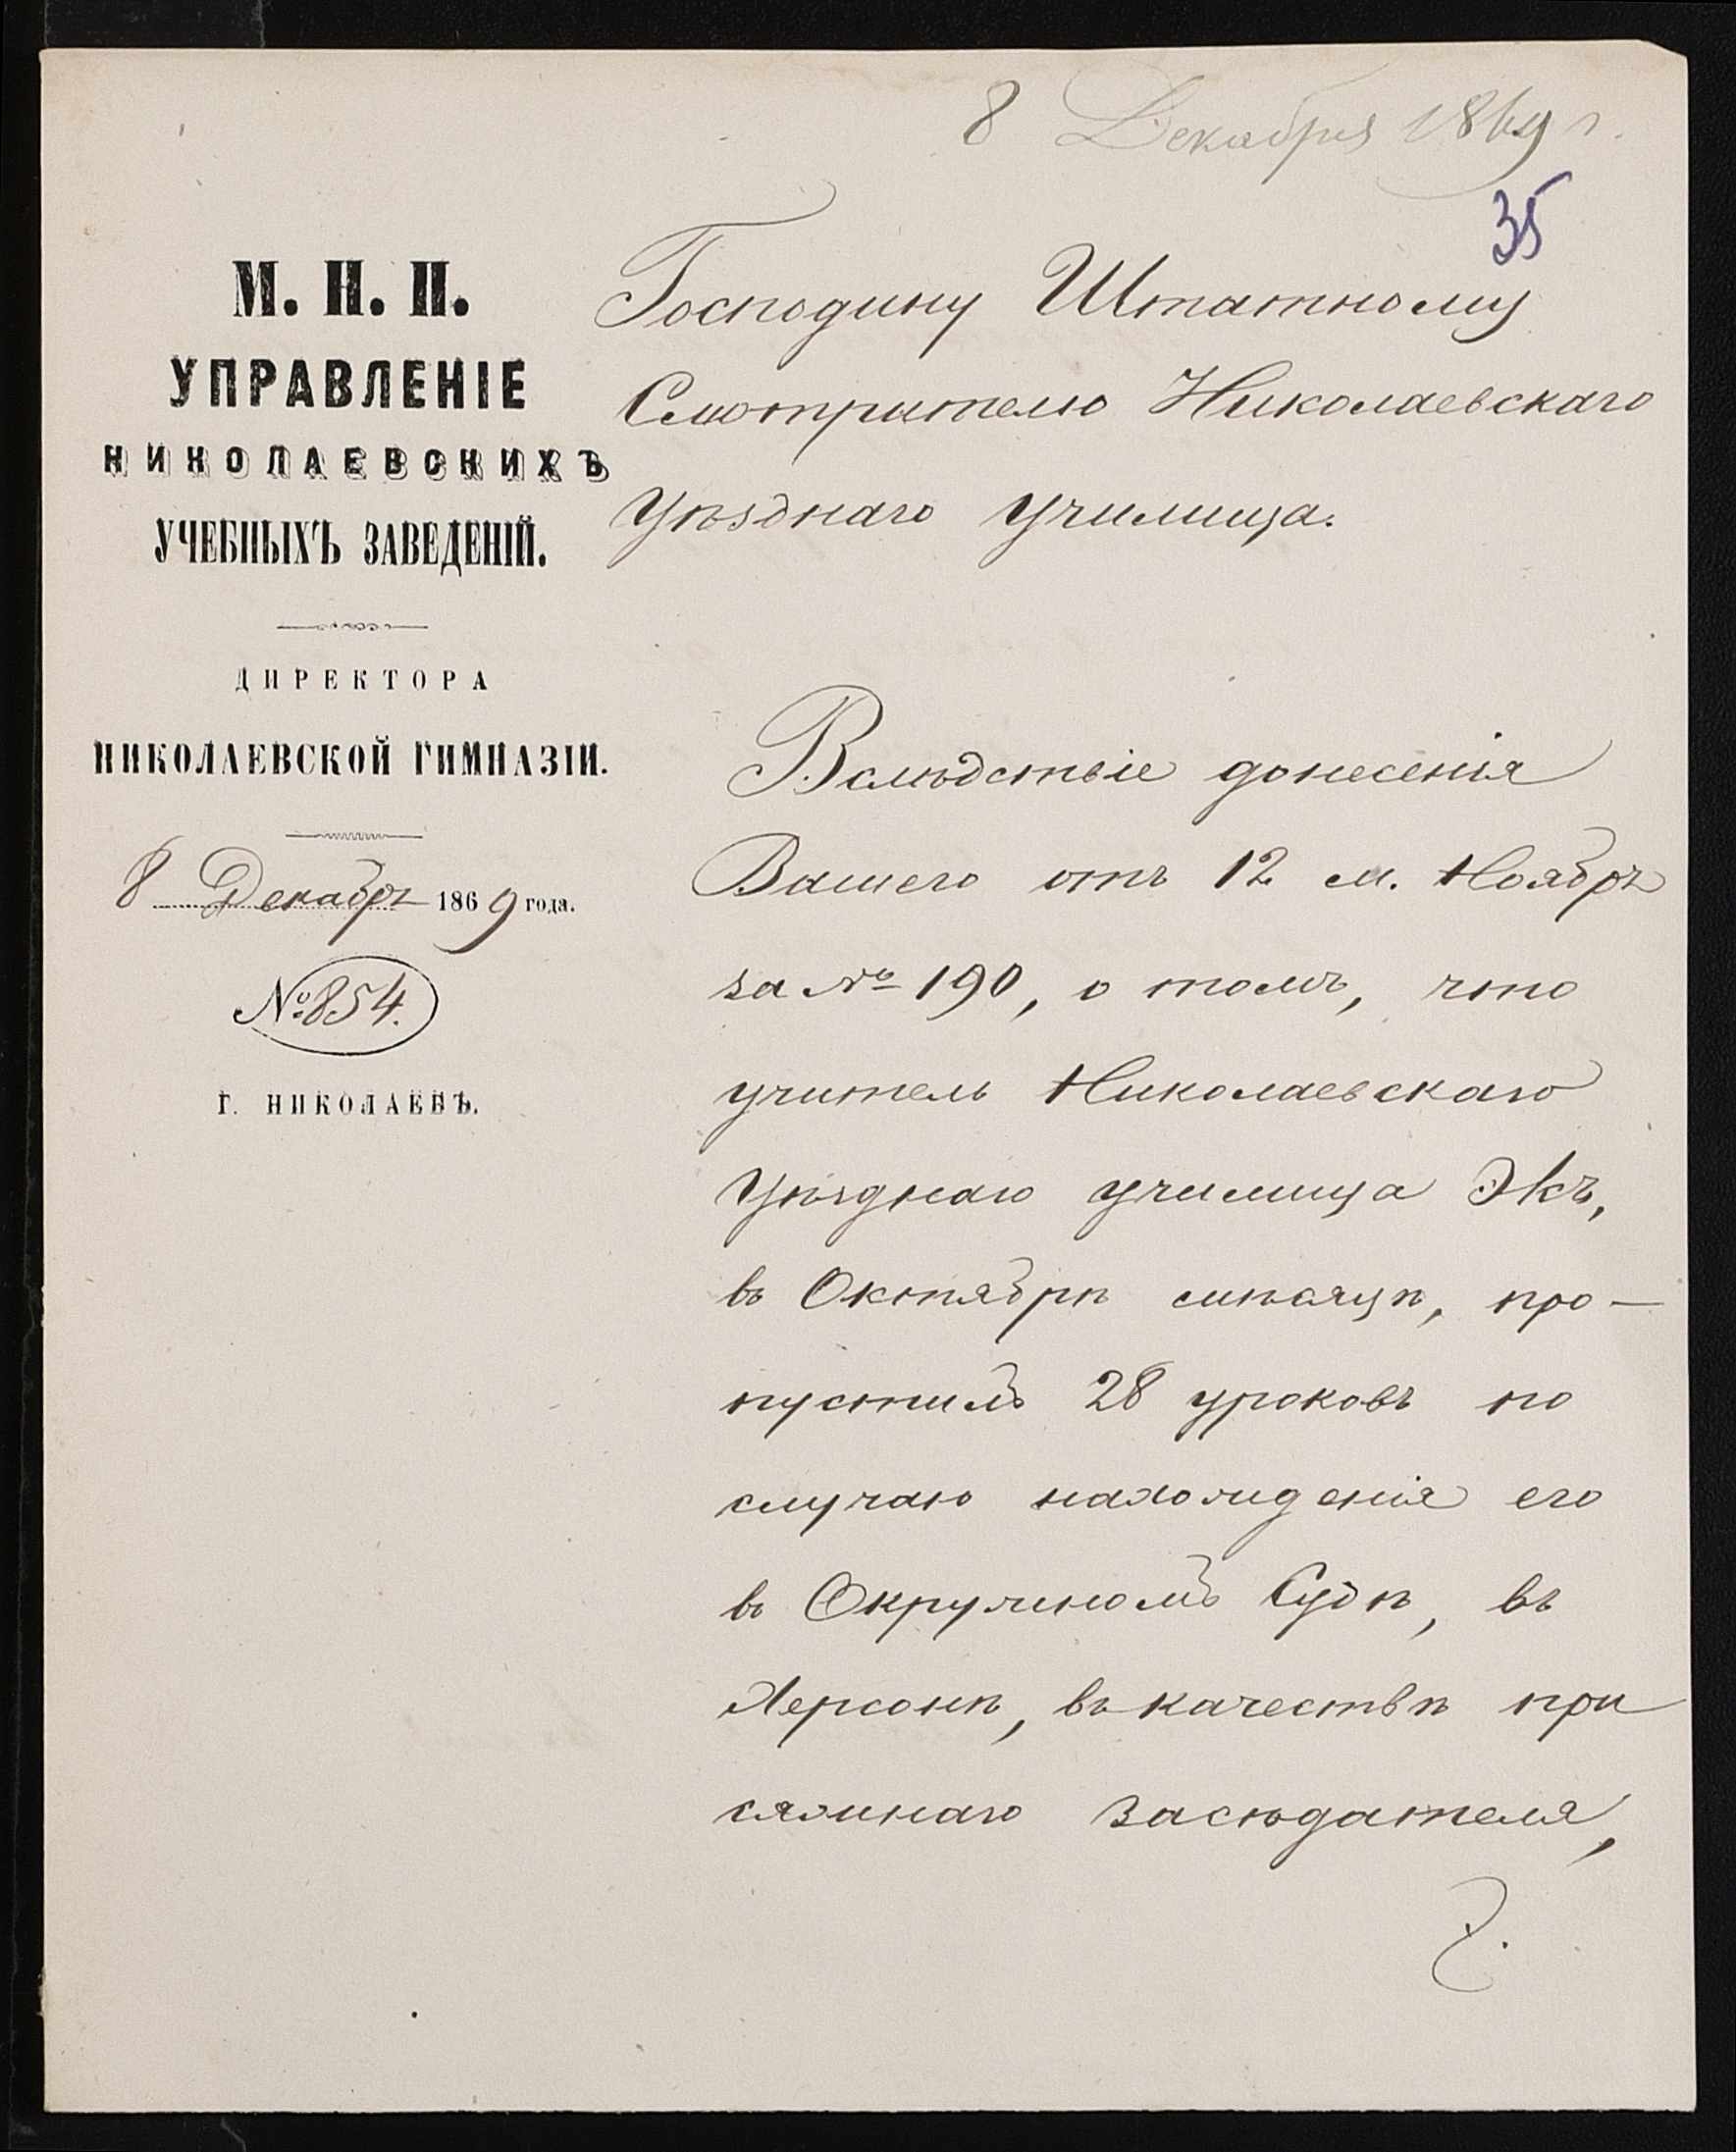 8 Декабря 1869 г.
35
М. Н. П.
УПРАВЛЕНІЕ
НИКОЛАЕВСКИХЪ
УЧЕБНЫХЪ ЗАВЕДЕНІЙ.
ДИРЕКТОРА
НИКОЛАЕВСКОЙ ГИМНАЗІИ.
8 Декабря 1869 года.
№ 854.
Г. НИКОЛАЕВЪ.
Господину Штатному
Смотрителю Николаевскаго
Уѣзднаго Училища.
Вслѣдствіе донесенія
Вашего отъ 12 м. Ноября
за № 190, о томъ, что
учитель Николаевскаго
Уѣзднаго училища Экъ,
въ Октябрѣ мѣсяцѣ, про-
пустилъ 28 уроковъ по
случаю нахожденія его
въ Окружномъ Судѣ, въ
Херсонѣ, въ качествѣ при
сяжнаго засѣдателя,